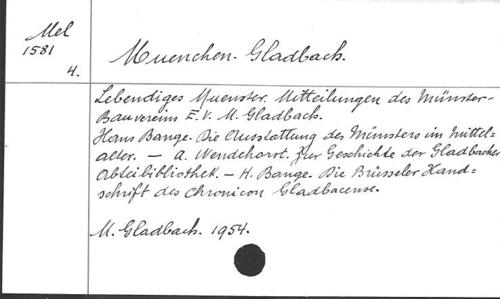 Mel
1581
4.
Muenchen-Gladbach.
Lebendiges Muenster. Mitteilungen des Münster-
Bauvereins E.V. M. Gladbach.
Hans Bange. Die Ausstattung des Münsters im Mittel=
alter. — A. Wendehorst. Zur Geschichte der Gladbacher
Abteibibliothek. — H. Bange. Die Brüsseler Hand=
schrift des Chronicon Gladbacense.
M. Gladbach. 1954.